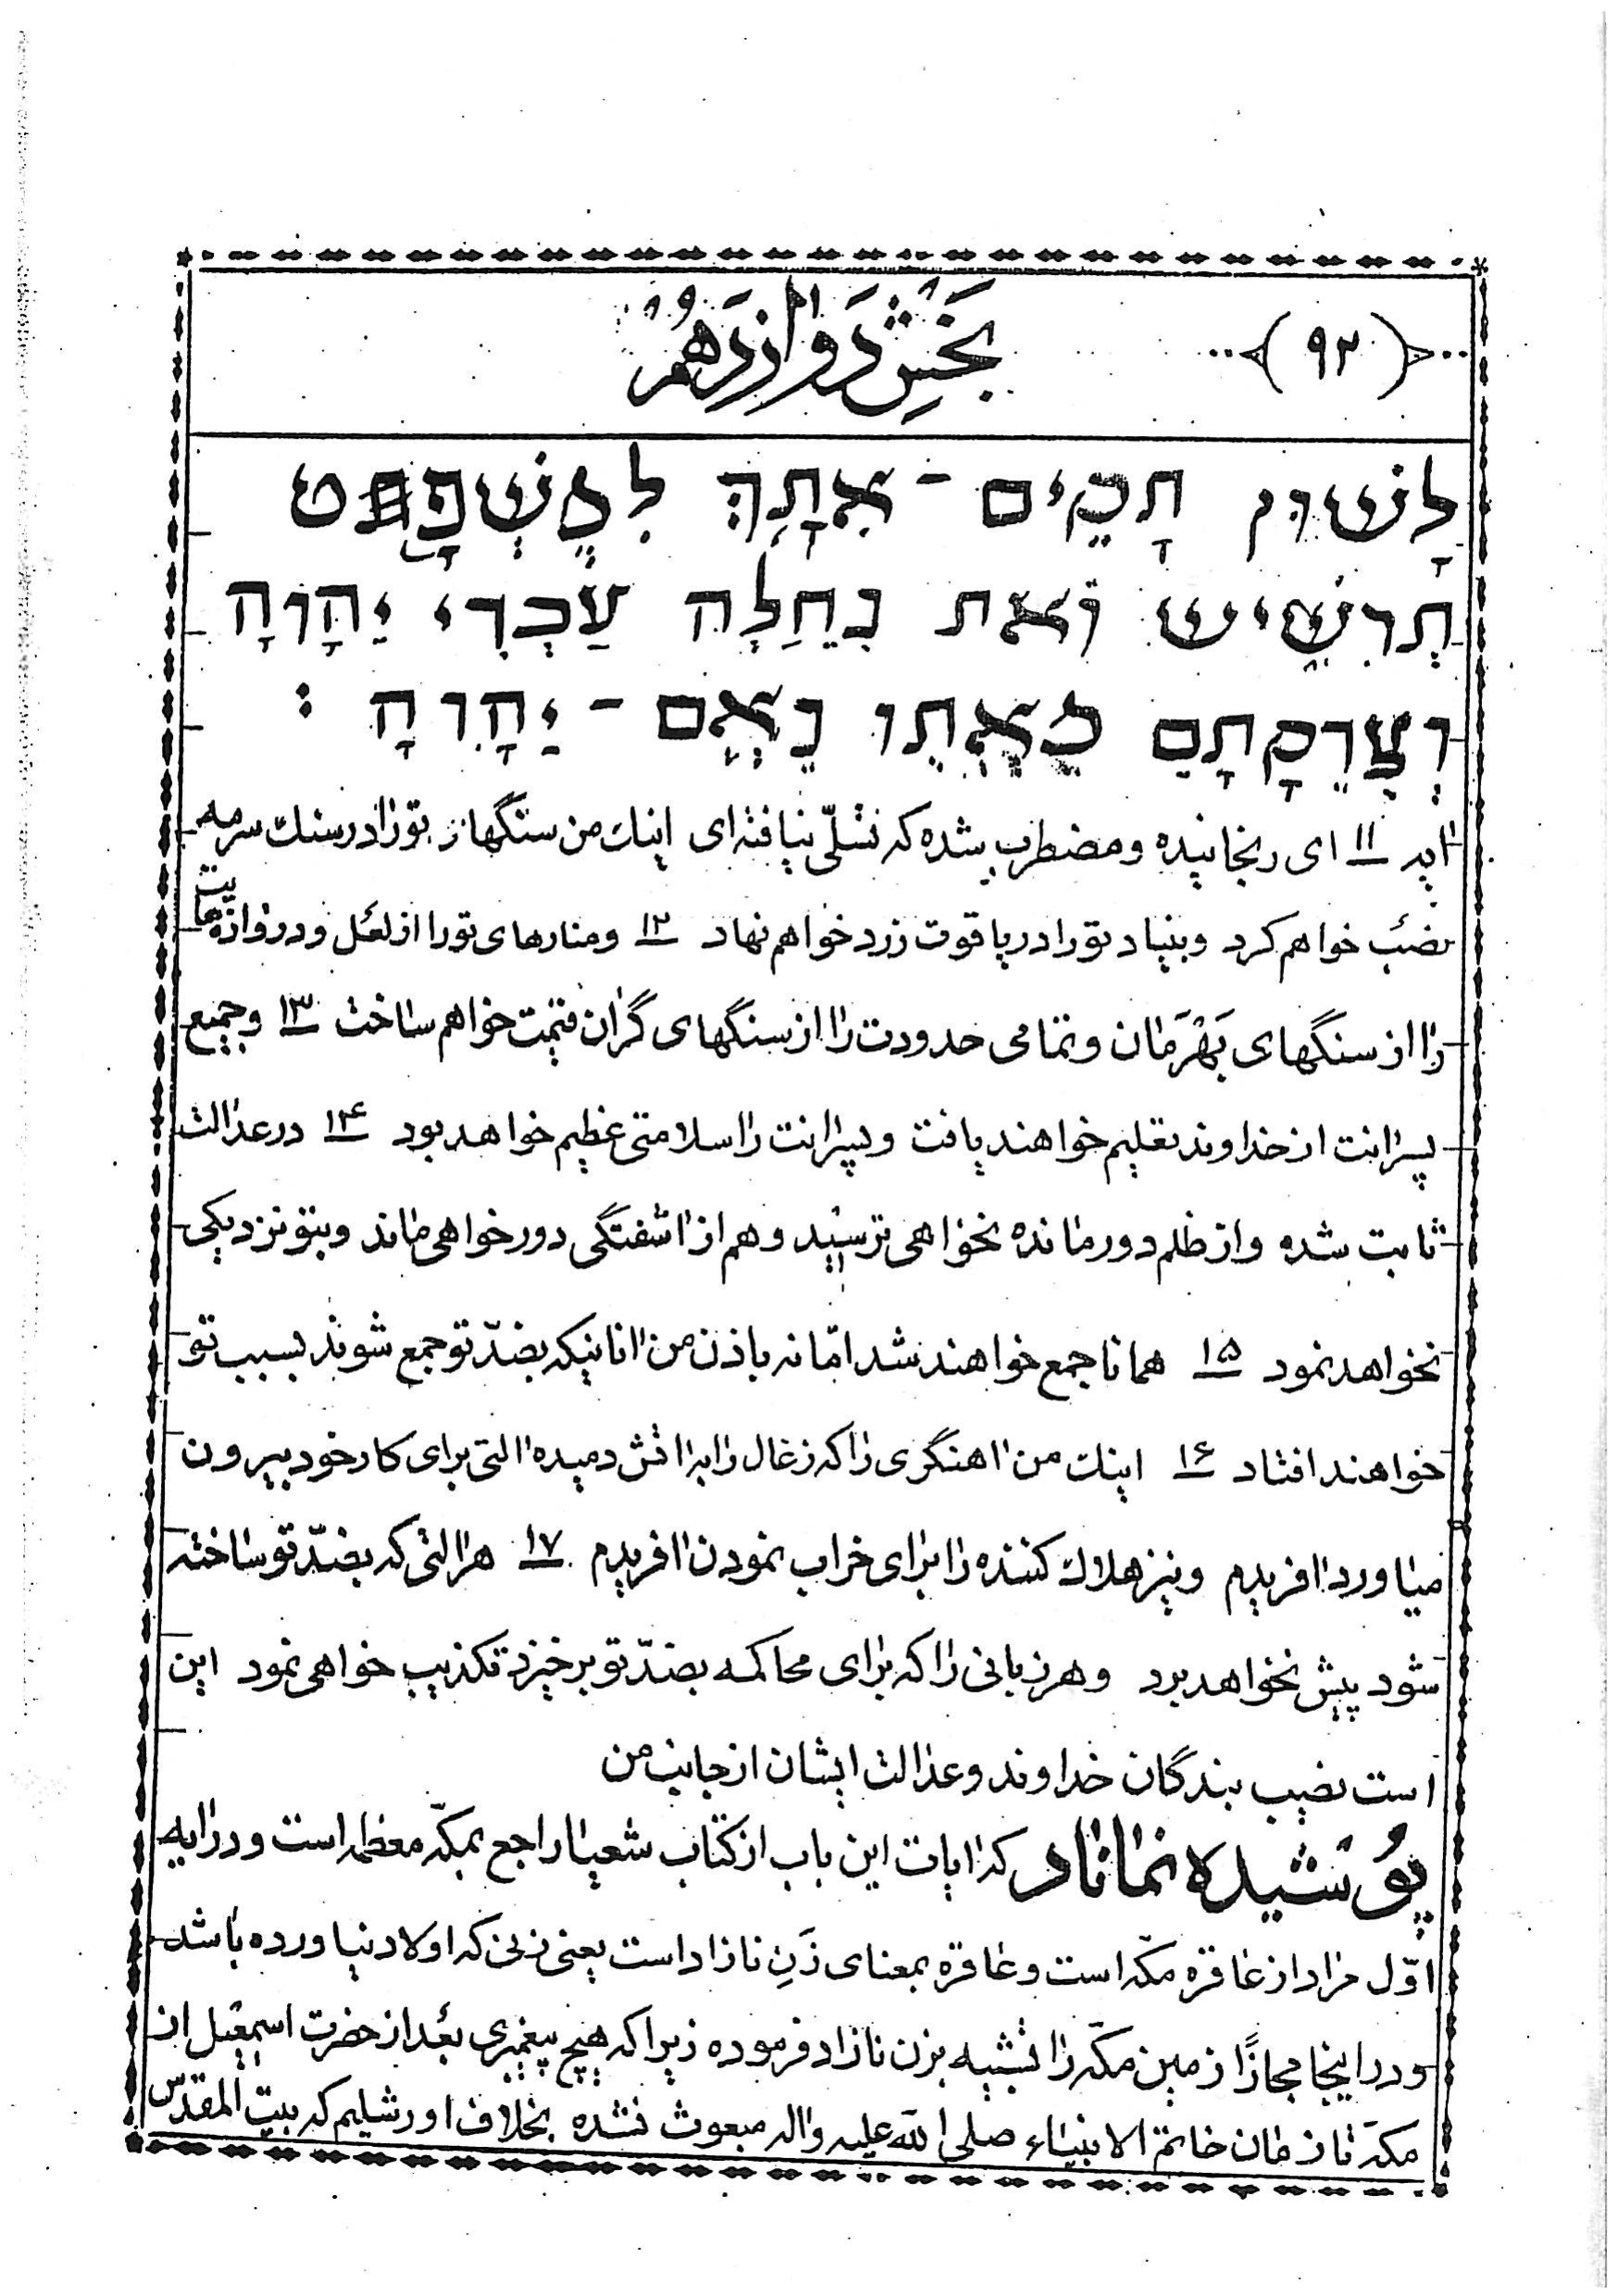 ﴿۹۲﴾ بَخشِ دَوازدَهُم
לָשׁוּן תָּקֵּים־אִתָּךְ לַמִּשְׁפָּט
תַרְשִׁיעִי זֹאת נַחֲלַת עַבְדֵי יַהֲוָה
וְצִדְקָתָם מֵאִתִּי נְאֻם־יַהֲוָה׃
ایه ۱۱ ای رنجانیده ومضطرب شده که تسلّی نیافته‌ای اینك من سنگهایت تورا در سنك سرمه
نصب خواهم کرد وبنیاد تورا در یاقوت زرد خواهم نهاد ۱۲ ومنارهای تورا از لعل ودروازهایت
را از سنگهای بَهْرَمان وتمامی حدودت را از سنگهای گران قیمت خواهم ساخت ۱۳ وجمیع
پسرانت از خداوند تعلیم خواهند یافت وپسرانت را سلامتی عظیم خواهد بود ۱۴ در عدالت
ثابت شده واز ظلم دور مانده نخواهی ترسید وهم از اشفتگی دور خواهی ماند وبتو نزدیکی
نخواهد نمود ۱۵ همانا جمع خواهند شد امّا نه باذن من انانیکه بضدّ تو جمع شوند بسبب تو
خواهند افتاد ۱۶ اینك من اهنگری را که زغال را به اتش دمیده التی برای کار خود بیرون
میاورد افریدم ونیز هلاك کننده را برای خراب نمودن افریدم ۱۷ هر التی که بضدّ تو ساخته
شود پیش نخواهد برد وهر زبانی را که برای محاکمه بضدّ تو برخیزد تکذیب خواهی نمود این
است نصیب بندگان خداوند وعدالت ایشان از جانب من
پوُشیده نماناد که ایات این باب از کتاب شعیا راجع بمکّه معظمه است ودر ایه
اوّل مراد از عاقره مکّه است وعاقره بمعنای زَنِ نازاد است یعنی زنی که اولاد نیاورده باشد
ودر اینجا مجازًا زمین مکّه را تشبیه بزن نازاد فرموده زیرا که هیچ پیغمبری بعد از حضرت اسمعیل از
مکّه تا زمان خاتم الانبیاء صلی الله علیه واله مبعوث نشده بخلاف اورشلیم که بیت المقدّس